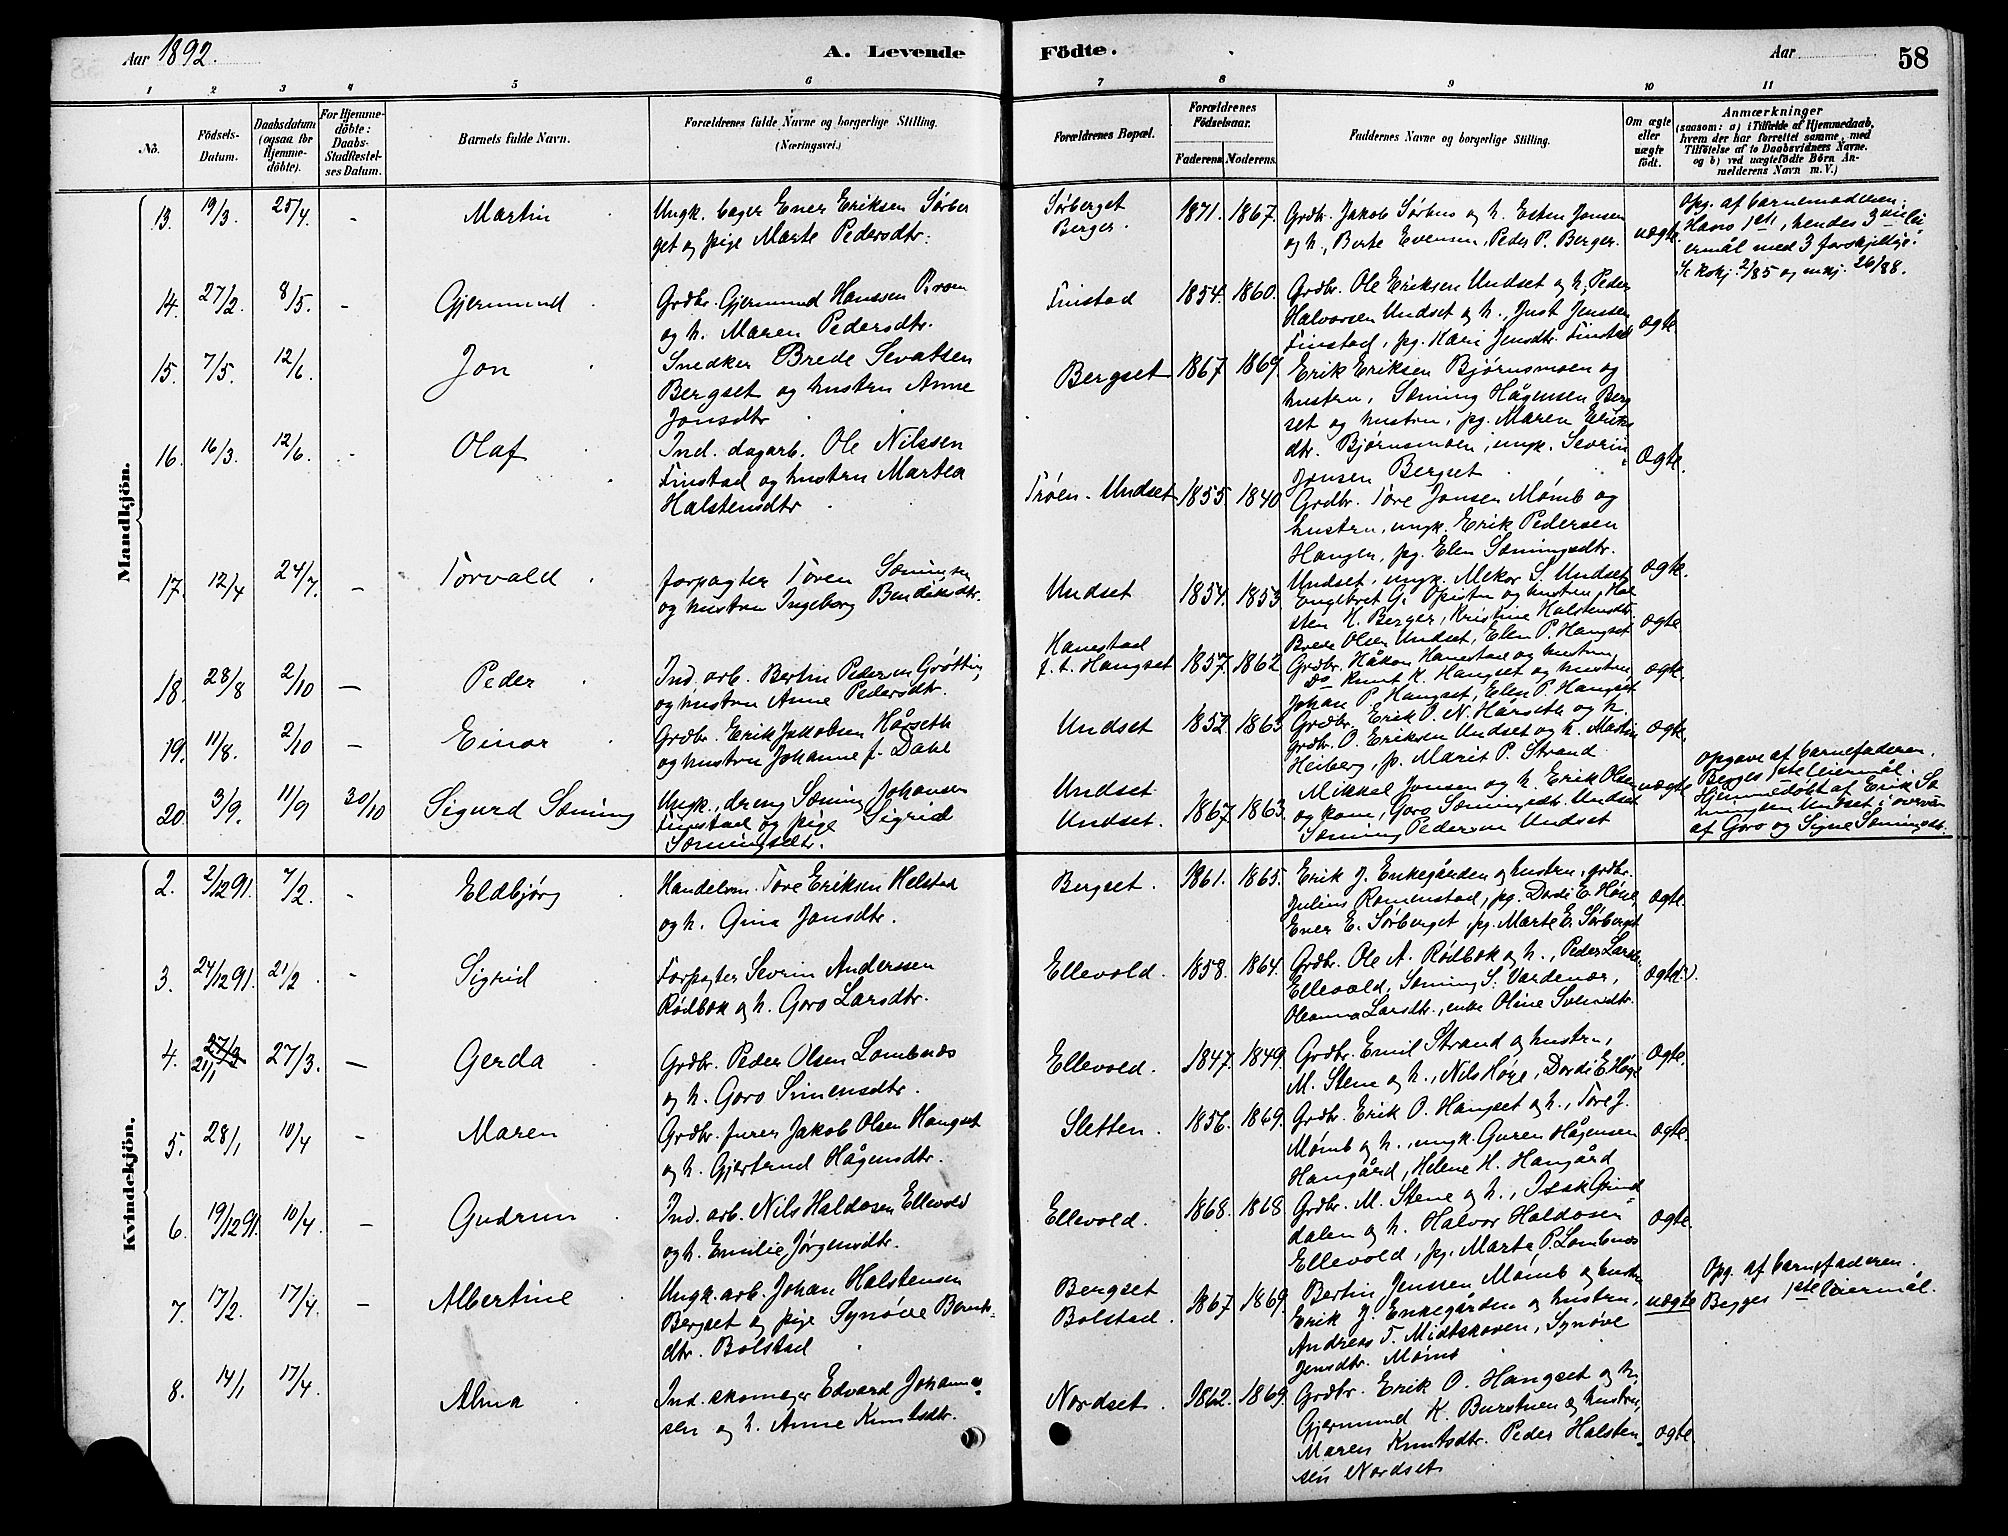 Aar 1892.
A. Levende Födte.
Aar
58
1 2 3 4 5 6 7 8 9 10 11
No.
Födsels-Datum.
Daabsdatum (ogsaa for Hjemmedöbte).
For Hjemmedöbte: Daabs-Stadfæstelses Datum.
Barnets fulde Navn.
Forældrenes fulde Navne og borgerlige Stilling. (Næringsvei.)
Forældrenes Bopæl.
Forældrenes Födselsaar.
Faderens. Moderens.
Faddernes Navne og borgerlige Stilling.
Om ægte eller uægte födt.
Anmærkninger
(saasom: a) i Tilfælde af Hjemmedaab, hvem der har forrettet samme, med Tilföielse af to Daabsvidners Navne, og b) ved uægtefödte Börn Anmelderens Navn m.V.)
Mandkjön.
13. 19/3. 25/4. - Martin
Ungk. bager Ener Eriksen Sørber
get og pige Marte Pedersdtr.
Sørberget
Berger.
1871. 1867.
Grdbr. Jakob Sørhus og h. Esten Jonsen
og h., Berte Evensen, Peder P. Berger.
uægte.
Opg. af barnemoderen.
Hans 1ste, hendes 3die lei
ermål med 3 forskjellige.
14. 27/2. 8/5. - Gjermund
Grdbr. Gjermund Hanssen
og h. Maren Pedersdtr.
Finstad 1854. 1860.
Grdbr. Ole Eriksen Undset og h., Peder
Halvorsen Undset og h., Just Jenssen
Finstad, pg. Kari Jensdtr. Finstad
ægte
15. 7/5. 12/6. Jon
Snedker Brede Sevatsen
Bergset og hustru Anne
Jonsdtr
Bergset 1867 1869.
Erik Eriksen Bjørnsmoen og
hustru, Sæming Hågensen Berg
set og hustru, pg. Maren Eriks
dtr. Bjørnsmoen, ungk. Sevrin
Jonsen Bergset
ægte.
16. 16/3. 12/6. - Olaf
Ind. dagarb. Ole Nilssen
Finstad og hustru Martea
Halstensdtr
Trøen. Undset 1855. 1840
Grdbr. Tore Jonsen Mømb og
hustru, ungk. Erik Pedersen
Hangen, pg. Elen Sæmingsdtr.
Undset, ungk. Mekor S. Undset
ægte.
17. 12/4 24/7. - Torvald
forpagter Toren Sæmingsen
og hustru Ingeborg Bendiksdtr.
Undset 1854. 1853
Engebret G. Opsitu og hustru, Hal
sten H. Berger, Kristine Halstensdtr
Brede Olsen Undset, Elen P. Hangset
ægte
18. 28/8 2/10 - Peder
Ind. arb. Bertin Pedersen Grøtting
og hustru Anne Pedersdtr.
Hanestad
f. t. Hangset 1857. 1862
Grdbr. Håkon Hanestad og hustru,
Do Knut K. Hangset og hustru,
Johan P. Hangset, Elen P. Hangset
ægte.
19. 11/8. 2/10 - Einar
Grdbr. Erik Jakobsen Hårseth
og hustru Johanne f. Dahl
Undset 1852 1863
Grdbr. Erik O. N. Hårseth og h.
grdbr. O. Eriksen Undset og h. Martin
Heiberg, p. Marit P. Strand
ægte.
20 3/9. 11/9 30/10 Sigurd Sæming
Ungk., dreng Sæming Johansen
Finstad og pige Sigrid
Sæmingsdtr.
Undset
Undset. 1867 1863.
Mikkal Jonsen og h. Erik Olsen
og kone, Goro Sæmingsdtr. Undset
Sæming Pedersen Undset
uægte
Opgave af barnefaderen.
Begges 1ste leiermål
Hjemmedøbt af Erik Sæ
mingsen Undset i overvær
af Goro og Signe Sæmingsdtr.
Kvindekjön.
2. 2/12 91. 7/2. - Eldbjørg
Handelsm. Tore Eriksen Helstad
og h. Gina Jonsdtr.
Bergset. 1861. 1865.
Erik J. Enkegården og hustru, grdbr.
Julius Romenstad, pg. Dordi E. Høie,
Ener E. Sørberget pg. Marte E. Sørberget
ægte.
3. 24/12 91. 21/2 - Sigrid
Forpagter Sevrin Anderssen
Rødbok og h. Goro Larsdtr.
Ellevold. 1858. 1864.
Grdbr. Ole A. Rødbok og h., Peder Larsen
Ellevold, Sæming S. Vardenær,
Oleanna Larsdtr., enke Oline Svensdtr.
ægte
4. 27/3 21/1 27/3. - Gerda
Grdbr. Peder Olsen Lombnæs
og h. Goro Simensdtr.
Ellevold. 1847. 1849.
Grdbr. Emil Strand og hustru,
M. Stene og h., Nils Høye, Dordi E Høye
ægte.
5. 28/1 10/4 - Maren
Grdbr. furer Jakob Olsen Hangset
og h. Gjertrud Hågensdtr.
Sletten. 1856. 1869.
Grdbr. Erik O. Hangset og h., Tore J.
Mømb og h., ungk. Guren Hågensen
Hangård, Helene H. Hangård
ægte.
6. 19/12 91. 10/4. - Gudrun
Ind. arb. Nils Haldosen Ellevold
og h. Emilie Jørgensdtr.
Ellevold. 1868. 1868
Grdbr. M. Stene og h., Isak Grind
dalen og h. Halvor Haldosen
Ellevold, pg. Marte P. Lombnæs
ægte.
7. 17/2. 17/4. - Albertine
Ungk. arb. Johan Halstensen
Bergset og pige Synøve Bernts
dtr. Bolstad
Bergset
Bolstad. 1867 1869.
Bertin Jenssen Mømb og hustru
Erik J. Enkegården og hustru,
Andreas T. Midtskoven, Synøve
Jensdtr. Mømb
uægte
Opg. af barnefaderen.
Begges 1ste leiermål.
8. 14/1 17/4. Alma
Ind. skomager Edvard Johannes
sen og h. Anne Knutsdtr.
Nordset. 1862. 1869.
Grdbr. Erik O. Hangset og h.
Gjermund K. Burstuen og hustru,
Maren Knutsdtr. Peder Halsten
sen Nordset
ægte